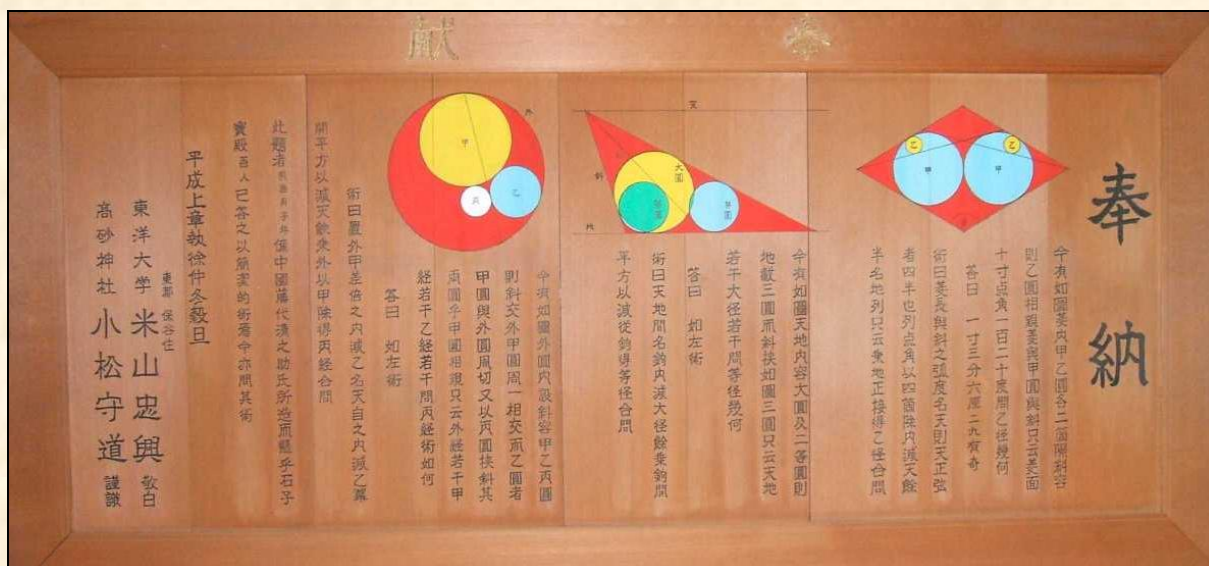 奉献
奉納
乙
乙
甲
甲
今有如圖菱内甲乙圓各二個隔斜容
則乙圓相親菱與甲圓與斜只云菱面
十寸点角一百二十度問乙径幾何
答曰 一寸三分六厘二九有奇
術曰菱長與斜之弧度名天則天正弦
者四半也列点角以四箇除内減天餘
半名地列只云乗地正接得乙径合問
天
斜
大圓
等圓
等圓
今有如圖天地内容大圓及二等圓則
地載三圓而斜挟如圖三圓只云天地
若干大径若干問等径幾何
答曰 如左術
術曰天地間名鈎内減大径餘乗鈎開
平方以減従鈎得等径合問
外
甲
乙
丙
今有如圖外圓内設斜容甲乙丙圓
則斜交外甲圓周一相交而乙圓者
甲圓與外圓周切又以丙圓挟斜其
両圓乎甲圓相親只云外経若干甲
経若干乙経若干問丙経術如何
答曰 如左術
術曰置外甲差倍之内減乙名天自之内減乙冪
開平方以減天餘乗外以甲除得丙経合問
此題者 中國藤代 之助氏所造而懸乎石子
寶殿吾人已答之以簡潔的術焉今亦問其術
平成上章執徐仲冬穀旦
東都 保谷住
東洋大学 米山忠興 敬白
高砂神社 小松守道 謹識